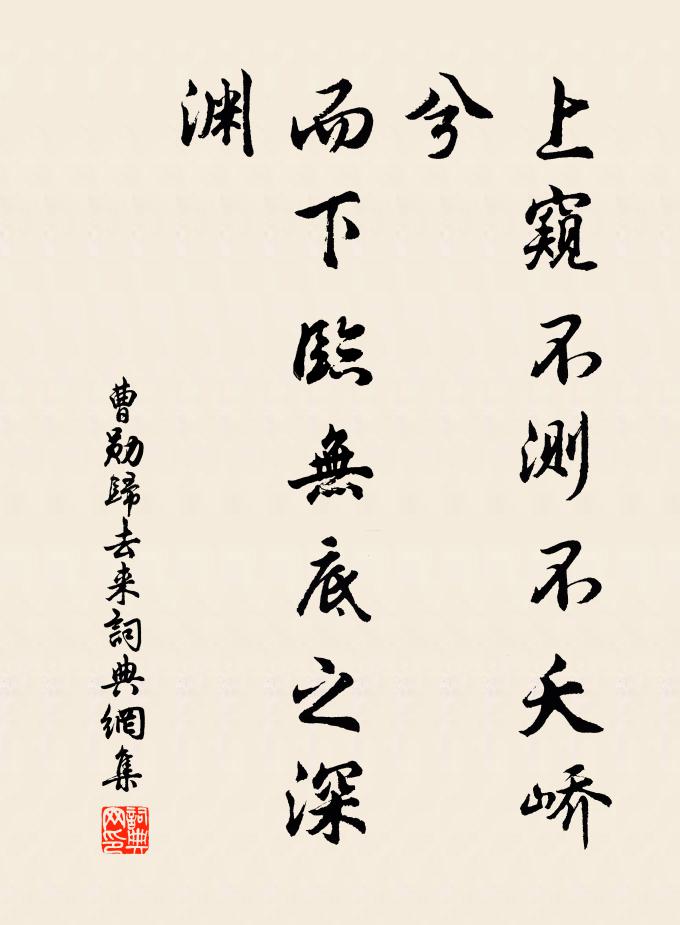 上窺不測不夭嶠
兮
而下臨無底之深
渊
曹勛歸去来詞典網集
詞典网印